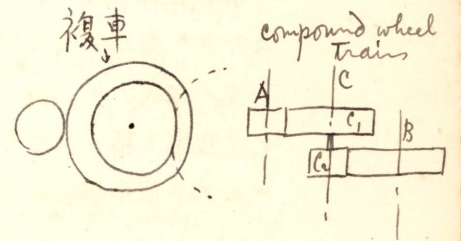 複車
compound wheel
trains
A
C
C1
B
C2